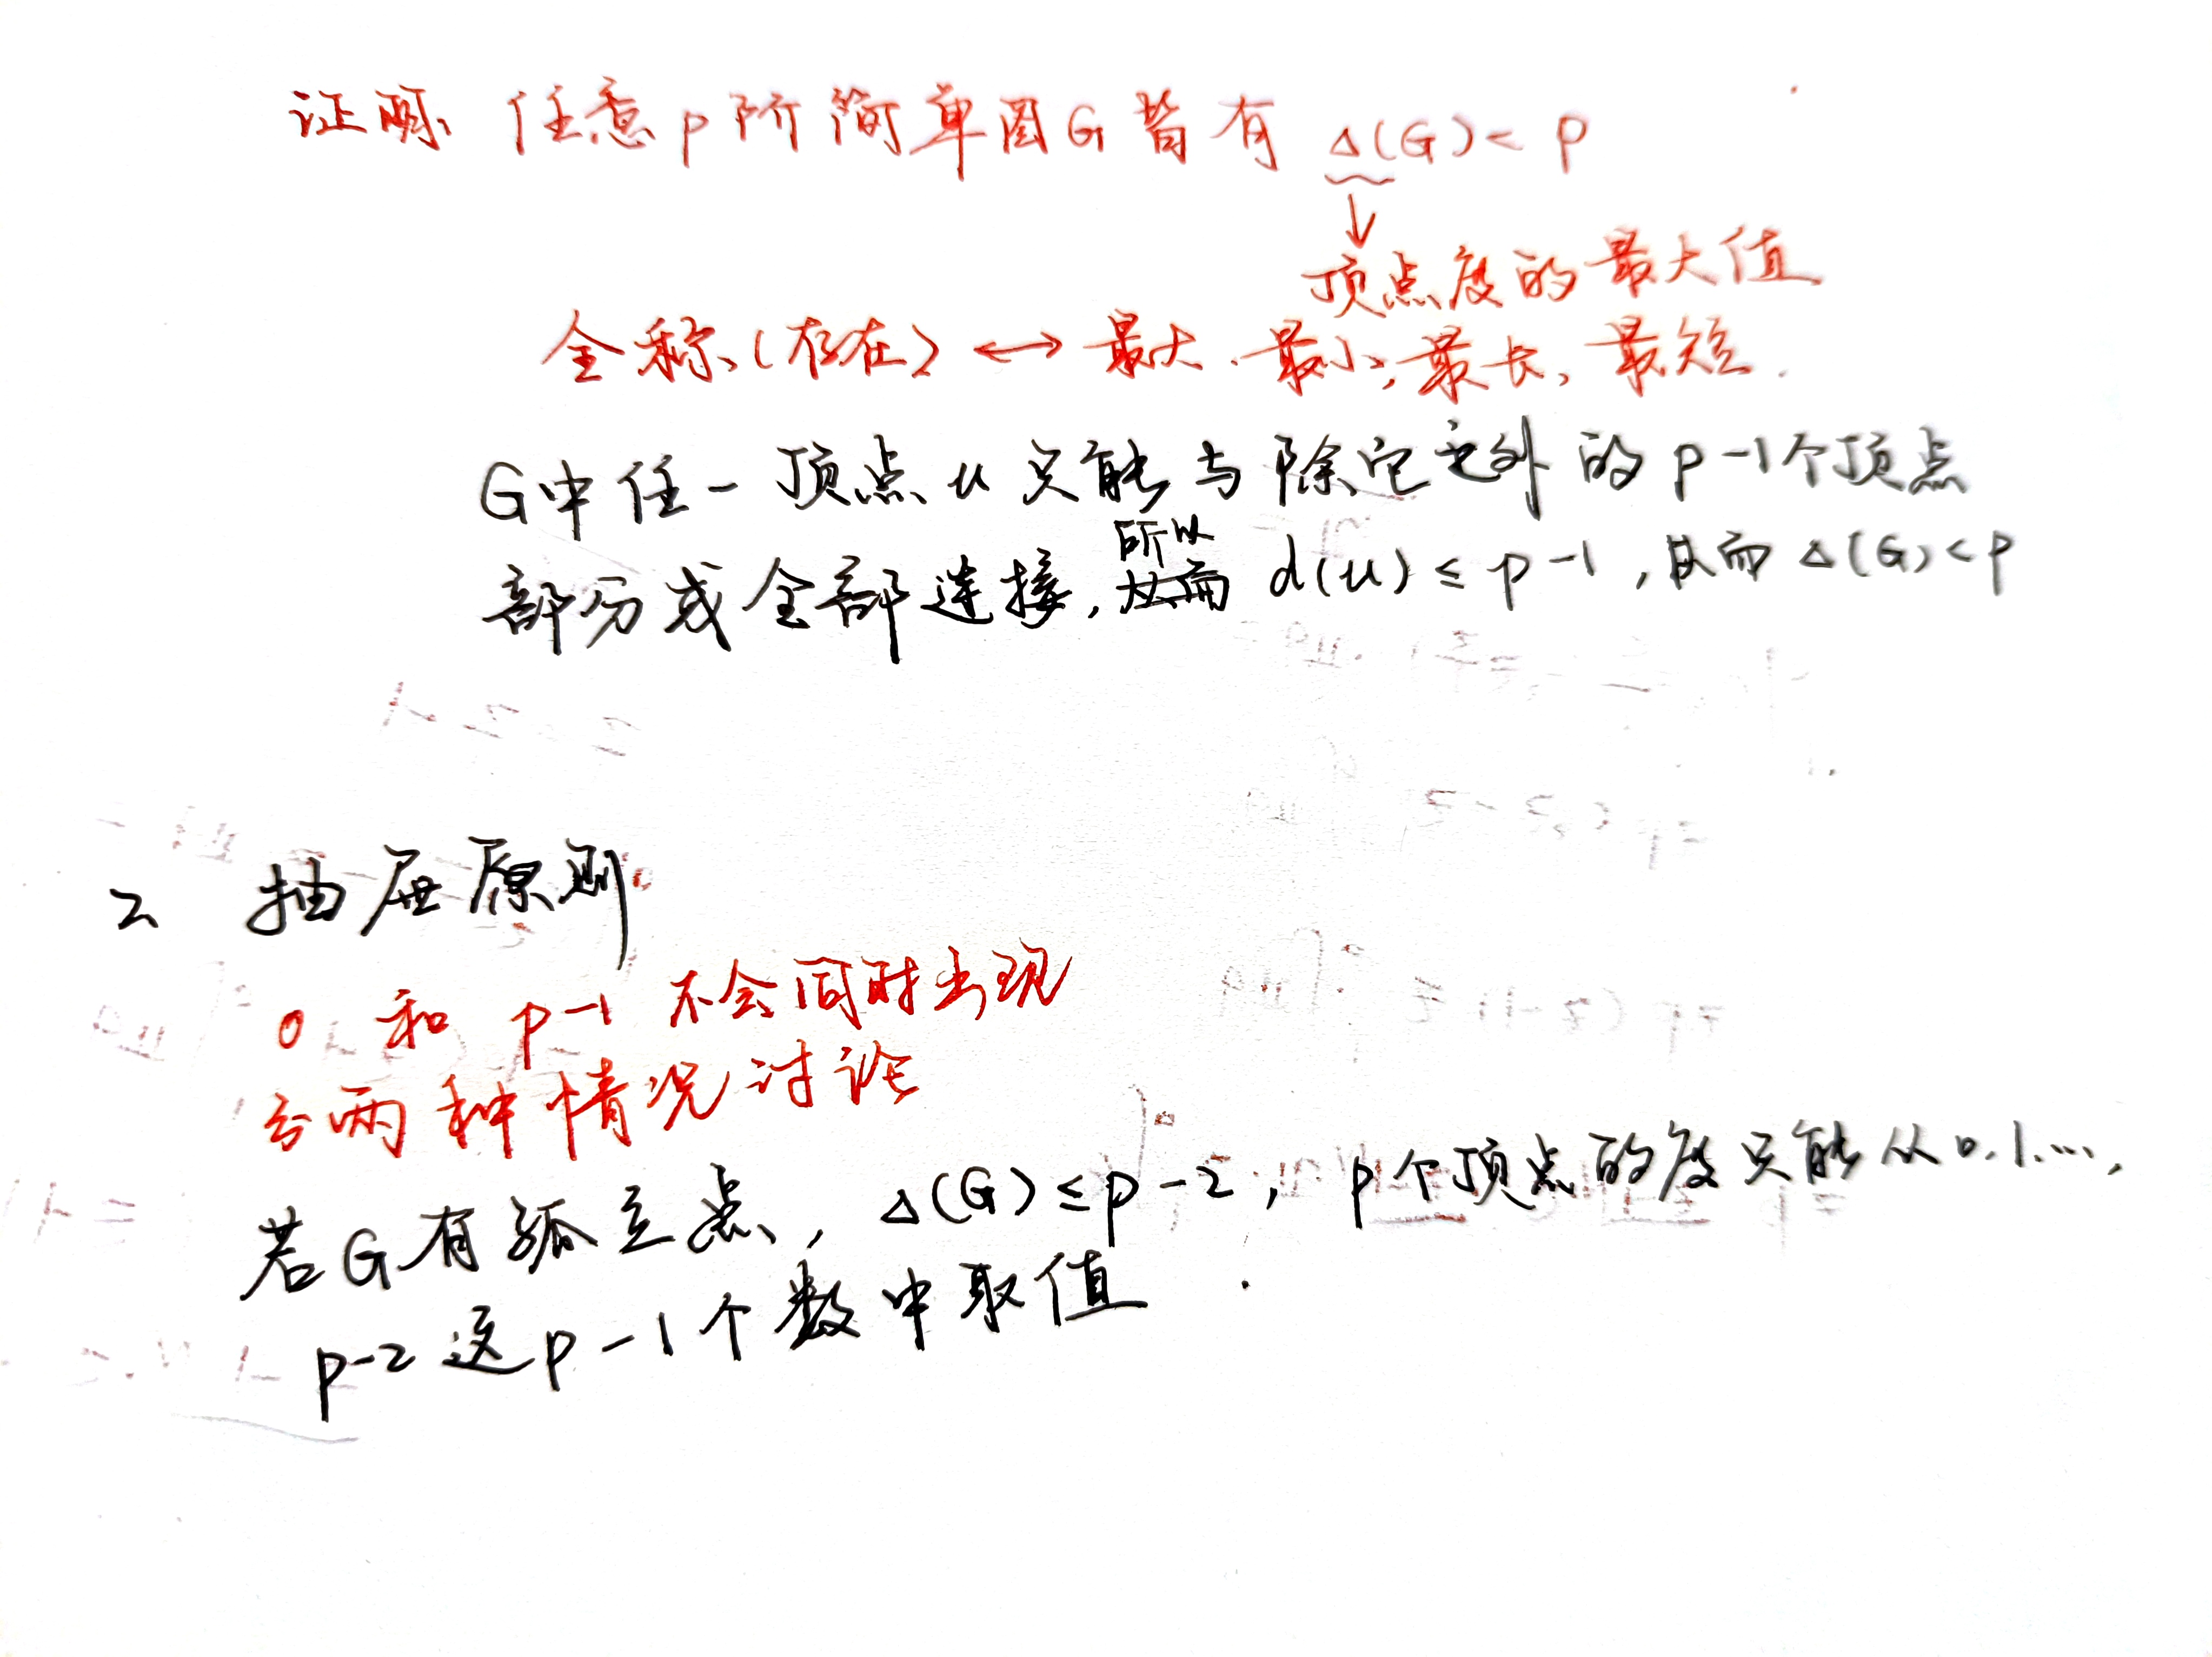 证明: 任意p阶简单图G皆有 Δ(G)<p
↓
顶点度的最大值
全称(存在) ↔ 最大.最小,最长,最短.
G中任一顶点u只能与除它之外的p-1个顶点
部分或全部连接,所以 d(u)≤p-1,从而Δ(G)<p
2 抽屉原则
0 和 p-1 不会同时出现
分两种情况讨论
若G有孤立点, Δ(G)≤p-2, p个顶点的度只能从0.1.…,
p-2这p-1个数中取值